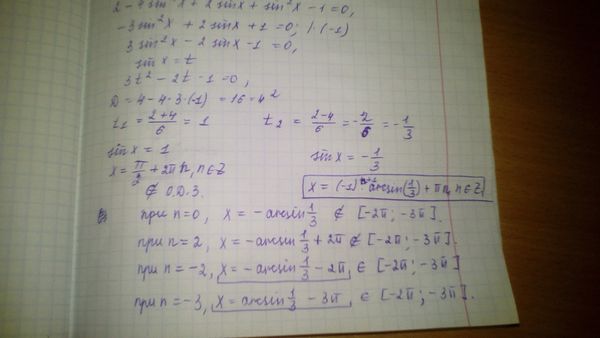 2 - 4 sin²x + 2 sin x + sin²x - 1 = 0,
-3 sin²x + 2 sin x + 1 = 0; |·(-1)
3 sin²x - 2 sin x - 1 = 0,
sin x = t
3t² - 2t - 1 = 0,
D = 4 - 4·3·(-1) = 16 = 4²
t₁ = (2+4)/6 = 1 t₂ = (2-4)/6 = -2/6 = -1/3
sin x = 1 sin x = -1/3
x = π/2 + 2πn, n∈Z x = (-1)ⁿ⁺¹ arcsin(1/3) + πn, n∈Z
∉ О.Д.З.
при n=0, x = -arcsin 1/3 ∉ [-2π; -3π].
при n=2, x = -arcsin 1/3 + 2π ∉ [-2π; -3π].
при n=-2, x = -arcsin 1/3 - 2π, ∈ [-2π; -3π]
при n=-3, x = arcsin 1/3 - 3π, ∈ [-2π; -3π].